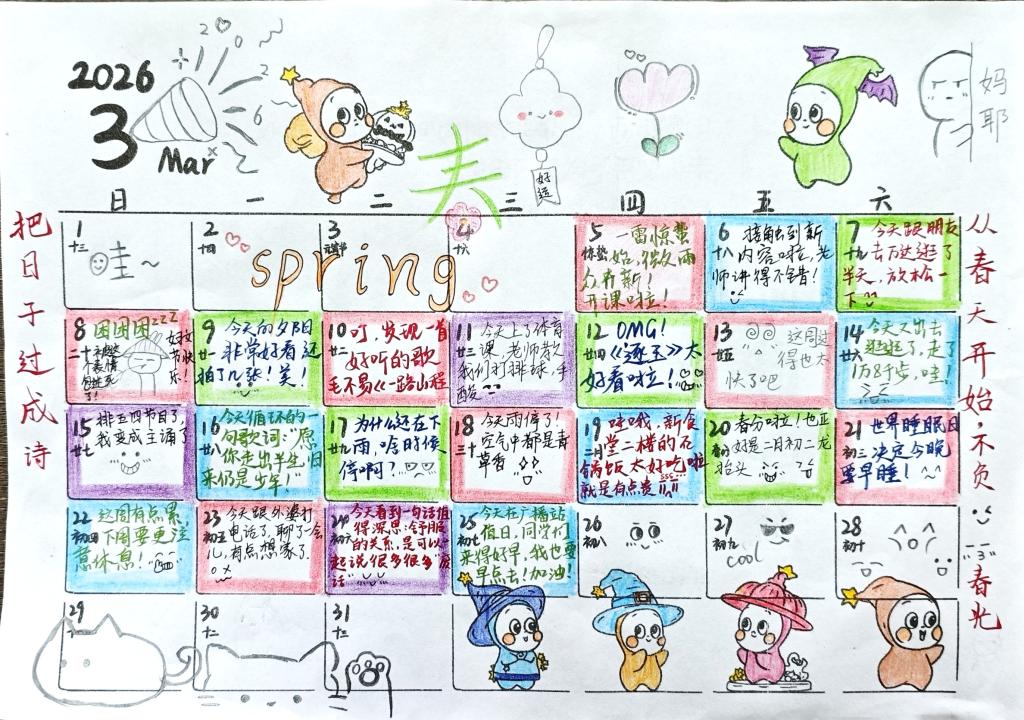 2026
3
Mar
2026
好运
妈耶
春
日 一 二 三 四 五 六
把日子过成诗
从春天开始，不负春光
spring
1
十三
哇~
2
十四
3
元宵节
4
十六
5
惊蛰
一雷惊蛰
始，微雨
众卉新！
开课啦！
6
十八
接触到新
内容啦，老
师讲得不错！
7
十九
今天跟朋友
去万达逛了
半天，放松一
下
8
二十
困困困zzz
妇女节快乐！
9
廿一
今天的夕阳
非常好看还
拍了几张！美！
10
廿二
叮，发现一首
好听的歌
毛不易《一路山程
11
廿三
今天上了体育
课，老师教
我们打排球，手
酸
12
廿四
OMG！
《逐玉》太
好看啦！
13
廿五
这周过
得也太
快了吧
14
廿六
今天又出去
逛逛了，走了
1万8千步，哇！
15
廿七
排五四节目了，
我变成主诵了
16
廿八
今天循环的一
句歌词："愿
你走出半生，归
来仍是少年！"
17
廿九
为什么还在下
雨，啥时候
停啊？
18
三十
今天雨停了！
空气中都是青
草香
19
二月
哇哦，新食
堂二楼的石
锅饭太好吃啦
就是有点贵
20
春分
春分啦！也正
好是二月初二龙
抬头
21
初三
世界睡眠日
决定今晚
要早睡！
22
初四
这周有点累
下周要更注
意休息！
23
初五
今天跟外婆打
电话了，聊了一会
儿，有点想家了
24
初六
今天看到一句话值
得深思："舒服
的关系，是可以一
起说很多很多"废
话"
25
初七
今天在广播站
值日，同学们
来得好早，我也要
早点去！加油！
26
初八
27
初九
cool
28
初十
29
30
十二
31
十三